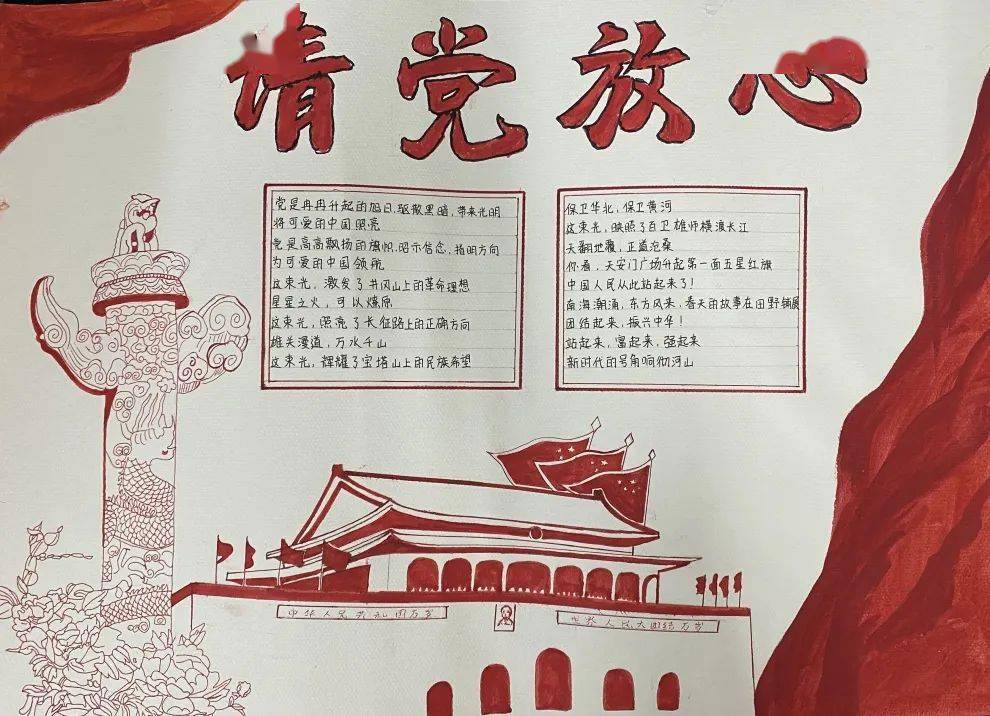 请党放心
党是冉冉升起的旭日，驱散黑暗，带来光明
将可爱的中国照亮
党是高高飘扬的旗帜，昭示信念，指明方向
为可爱的中国领航
这束光，激发了井冈山上的革命理想
星星之火，可以燎原
这束光，照亮了长征路上的正确方向
雄关漫道，万水千山
这束光，辉耀了宝塔山上的民族希望
保卫华北，保卫黄河
这束光，映照了百卫雄师横渡长江
天翻地覆，正道沧桑
你看，天安门广场升起第一面五星红旗
中国人民从此站起来了！
南海潮涌，东方风来，春天的故事在田野铺展
团结起来，振兴中华！
站起来，富起来，强起来
新时代的号角响彻河山
中华人民共和国万岁
世界人民大团结万岁